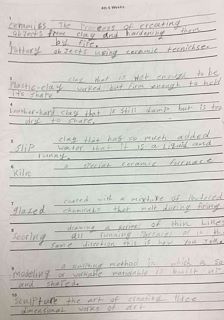 Art 6 Weeks
1
Ceramics The Process of creating
objects from clay and hardening them
by fire.
2
Pottery objects using ceramic tecnichses
3
clay that is wet enough to be
Plastic-clay worked but firm enough to hold
its shape
4
Leather-hard clay that is still damp but is too
dry to shape.
5
clay that has so much added
Slip water that it is a liquid and
runny.
6
a special ceramic furnace
Kiln
7
coated with a mixture of powdered
glazed chemicals that melt during firing
8
drawing a series of thin lines
Scoring all running in the
same direction this is how you
9
a sculpting method in which a
Modeling or workable is built up
and shaped.
10
Sculpture the art of creating three
dimensional works of art